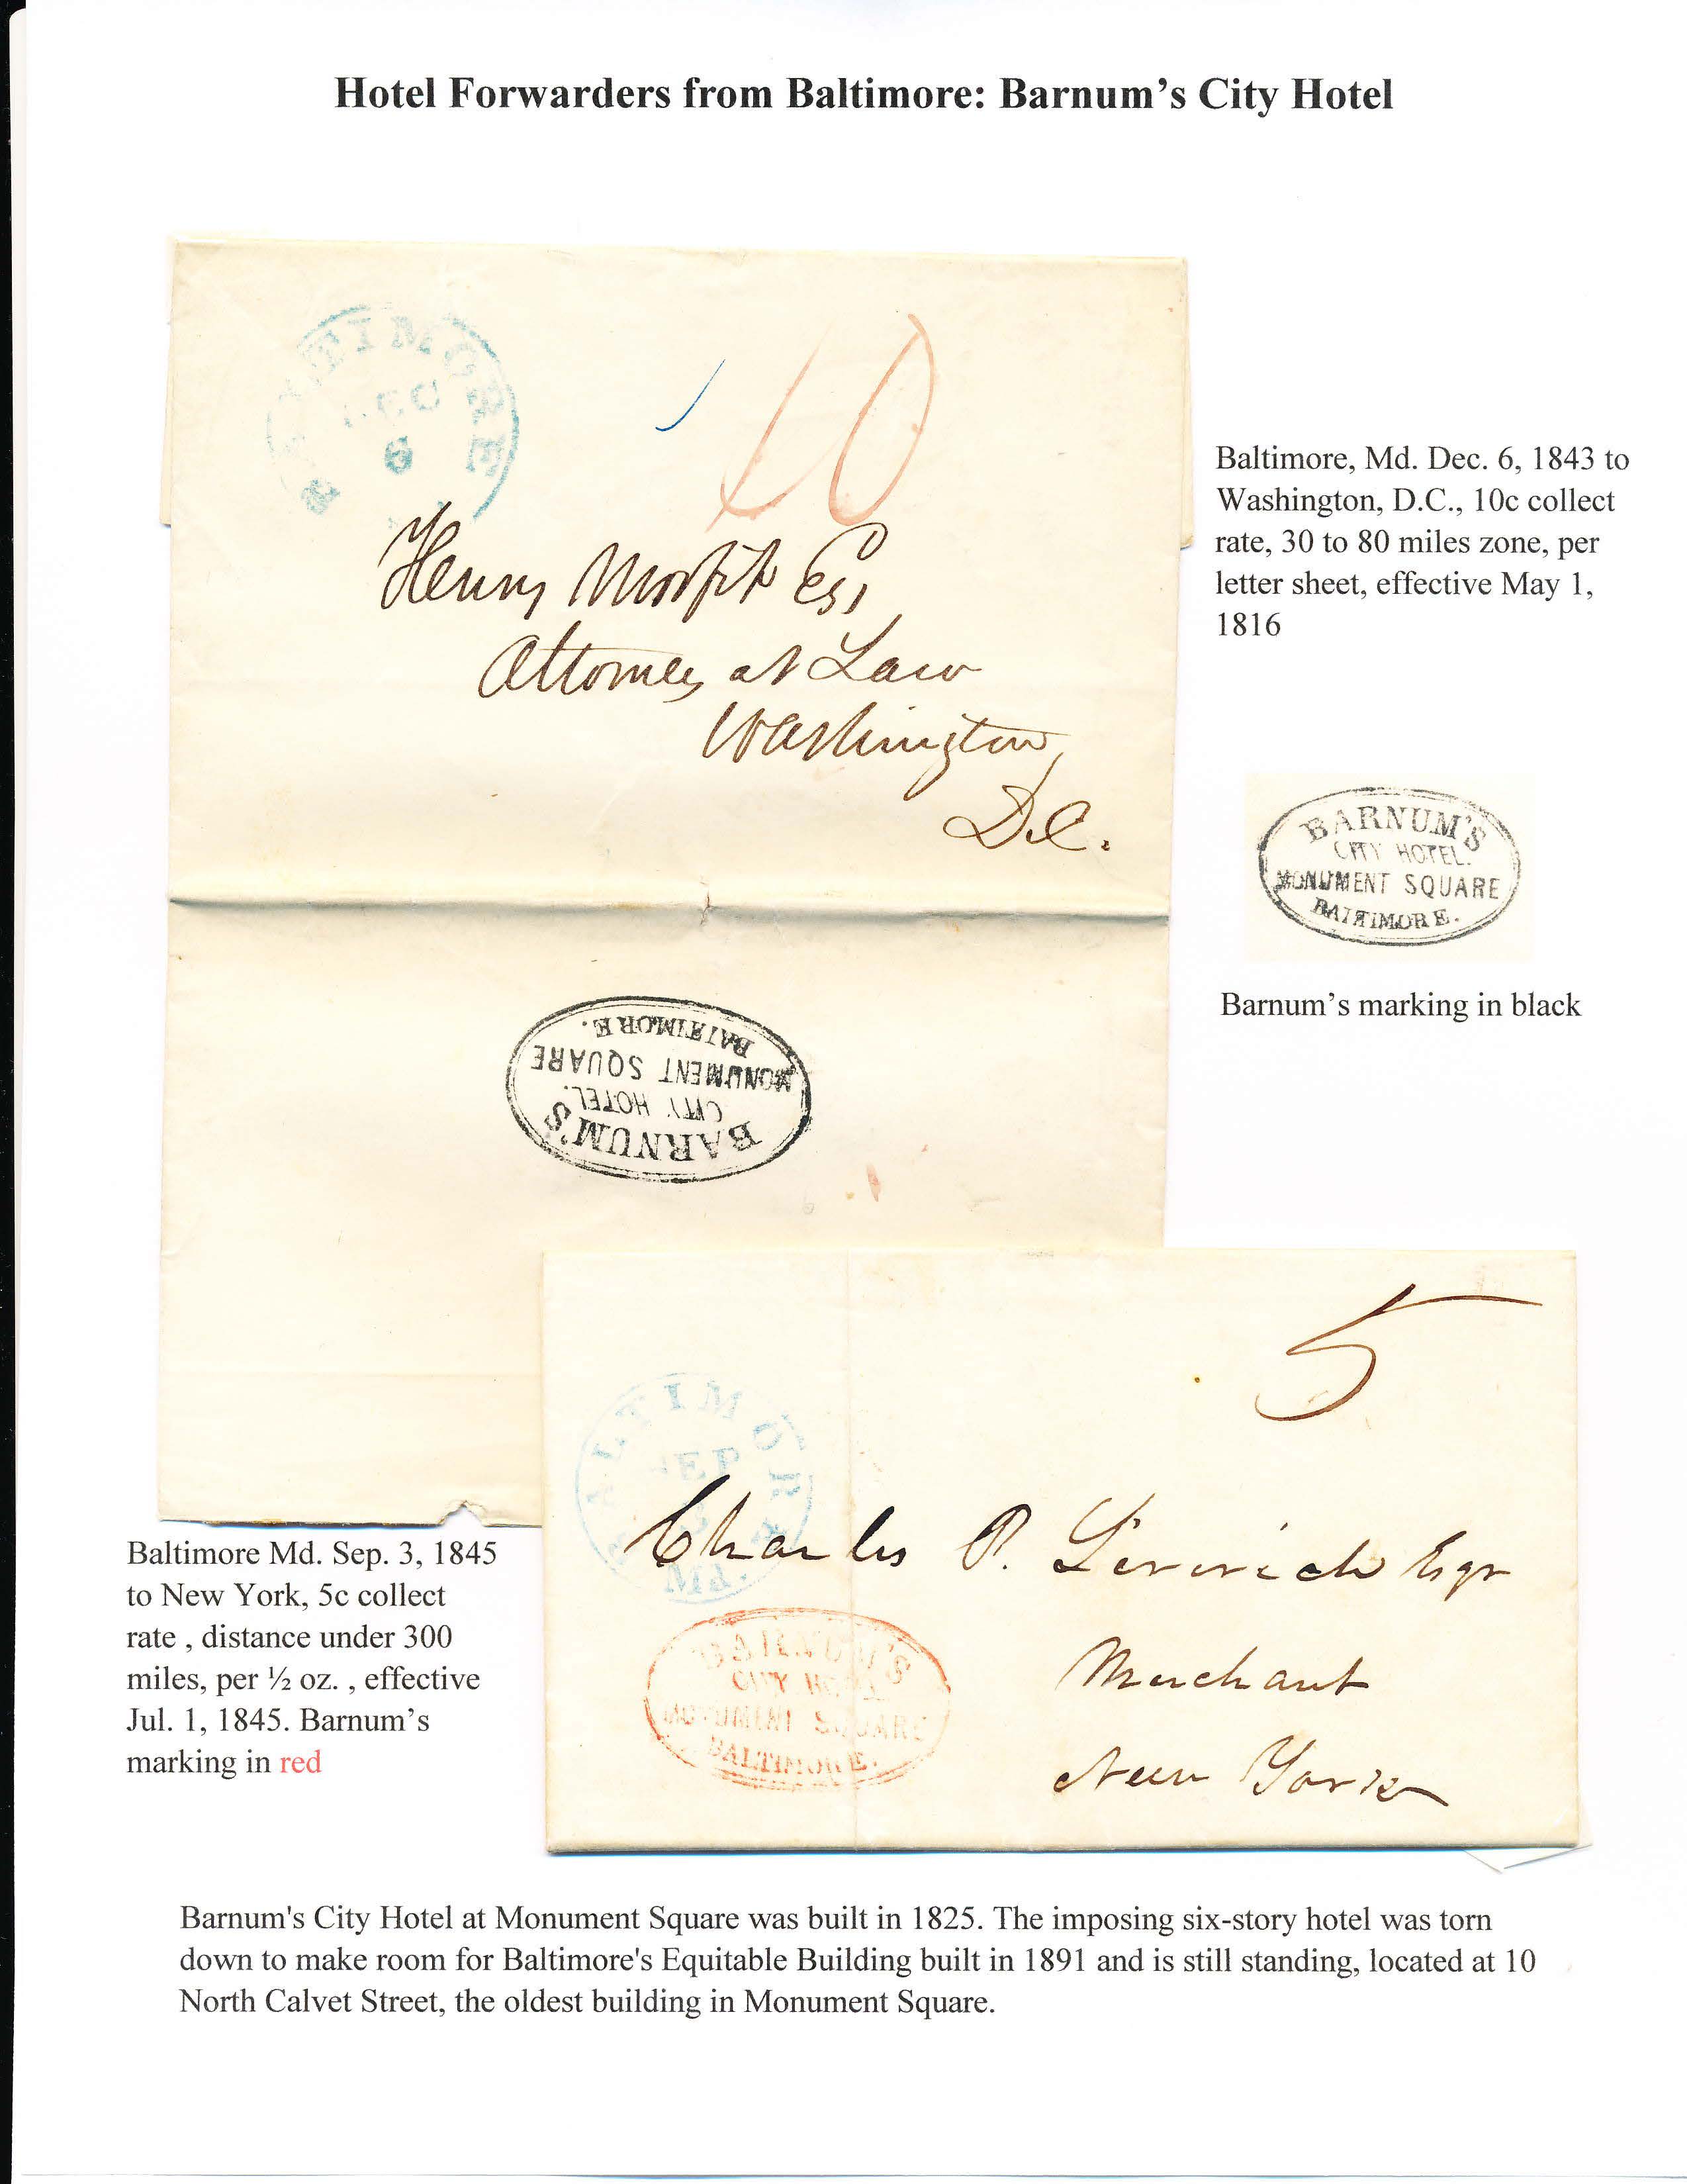 Hotel Forwarders from Baltimore: Barnum's City Hotel
TIMORE
DEC
6
10
Henry Morfit Esq
Attorney at Law
Washington
D.C.
Baltimore, Md. Dec. 6, 1843 to
Washington, D.C., 10c collect
rate, 30 to 80 miles zone, per
letter sheet, effective May 1,
1816
BARNUM'S
CITY HOTEL.
MONUMENT SQUARE
BALTIMORE.
Barnum's marking in black
BARNUM'S
CITY HOTEL.
MONUMENT SQUARE
BALTIMORE.
5
ALTIMOR
SEP
3
Md.
Charles P. Esqr
Merchant
New York
BARNUM'S
CITY HOTEL
MONUMENT SQUARE
BALTIMORE.
Baltimore Md. Sep. 3, 1845
to New York, 5c collect
rate , distance under 300
miles, per ½ oz. , effective
Jul. 1, 1845. Barnum's
marking in red
Barnum's City Hotel at Monument Square was built in 1825. The imposing six-story hotel was torn
down to make room for Baltimore's Equitable Building built in 1891 and is still standing, located at 10
North Calvet Street, the oldest building in Monument Square.